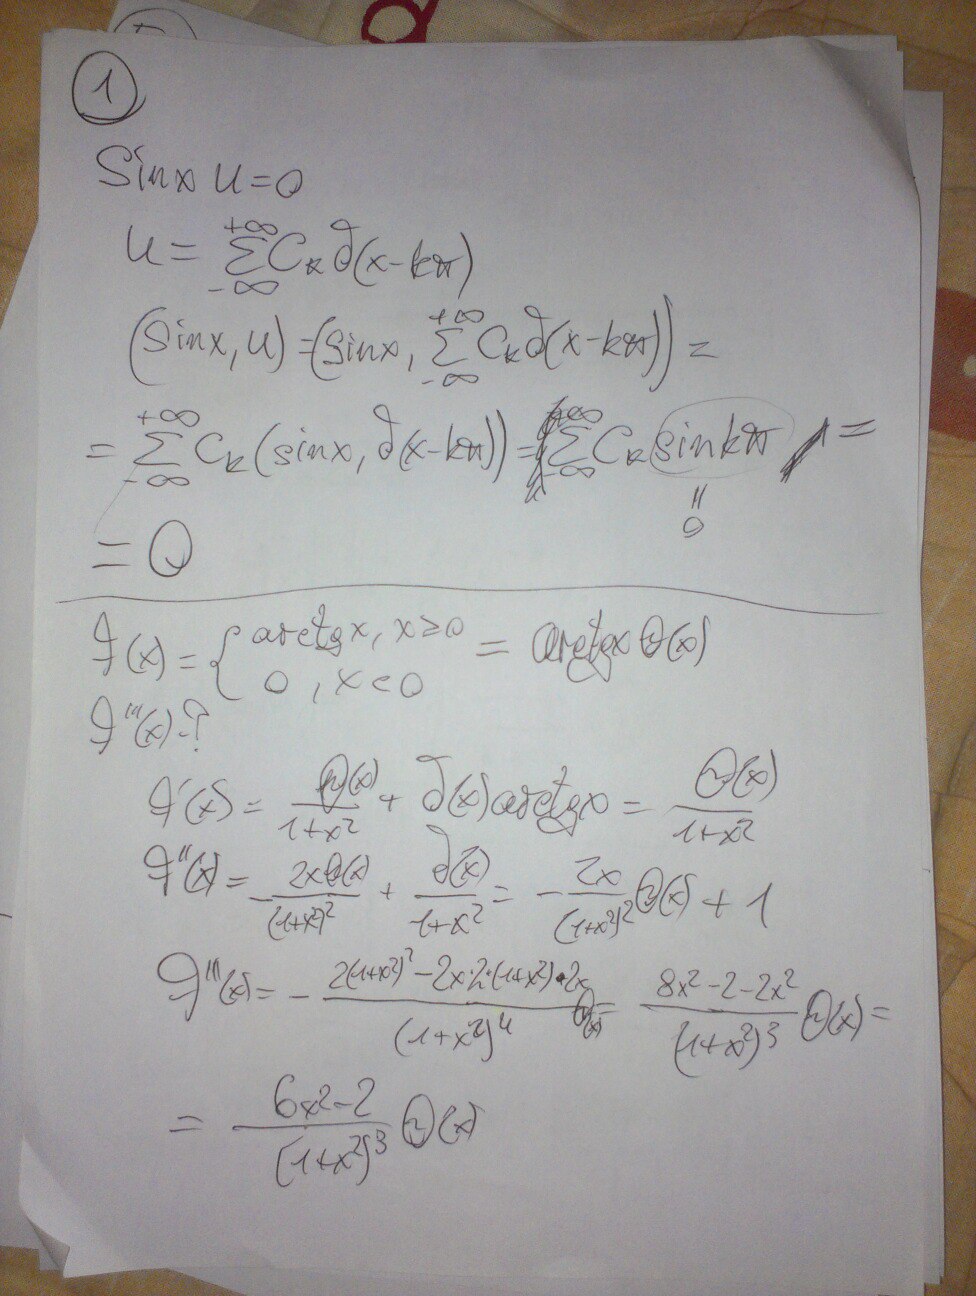 1
Sinx u=0
u= \sum_{-∞}^{+∞} C_k δ(x-kπ)
(sinx, u) =(sinx, \sum_{-∞}^{+∞} C_k δ(x-kπ)) =
= \sum_{-∞}^{+∞} C_k (sinx, δ(x-kπ)) = \sum_{-∞}^{+∞} C_k sinkπ =
"
0
= 0
f(x) = { arctgx, x≥0 = arctgx θ(x)
0, x<0
f'''(x)-?
f'(x) = \frac{θ(x)}{1+x^2} + δ(x)arctgx = \frac{θ(x)}{1+x^2}
f''(x) = -\frac{2xθ(x)}{(1+x^2)^2} + \frac{δ(x)}{1+x^2} = -\frac{2x}{(1+x^2)^2} θ(x) + 1
f'''(x) = -\frac{2(1+x^2)^2 - 2x·2·(1+x^2)·2x}{(1+x^2)^4} θ(x) = \frac{8x^2-2-2x^2}{(1+x^2)^3} θ(x) =
= \frac{6x^2-2}{(1+x^2)^3} θ(x)